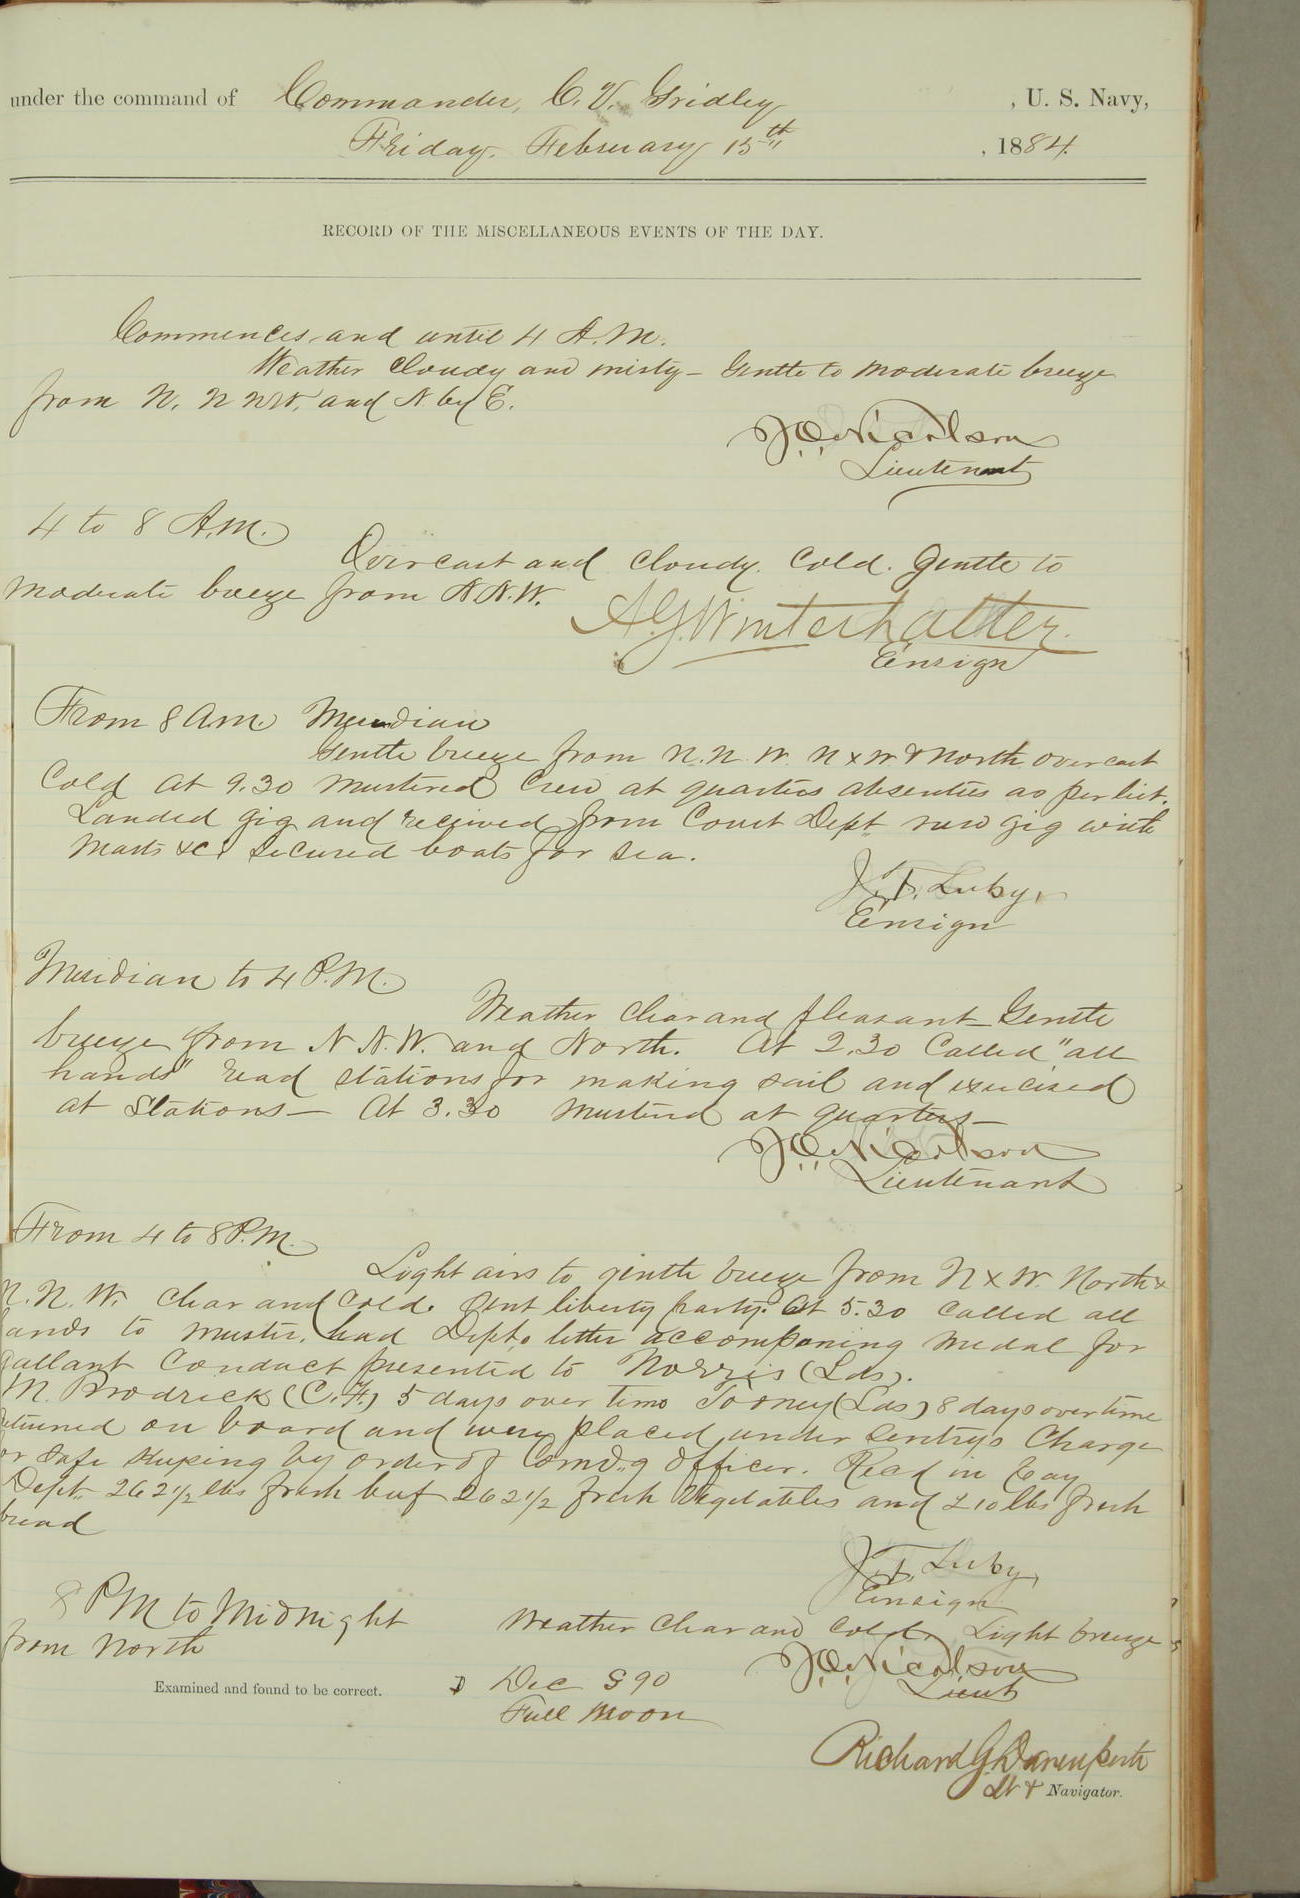 under the command of Commander, C. V. Gridley, U. S. Navy,
Friday, February 15th, 1884.
RECORD OF THE MISCELLANEOUS EVENTS OF THE DAY.
Commences and until 4 A.M.
Weather cloudy and misty - Gentle to moderate breeze
from N. N NW. and N. by E.
Nicolson
Lieutenant
4 to 8 A.M.
Overcast and cloudy. Cold. Gentle to
moderate breeze from N.N.W.
A.G. Winterhalter.
Ensign
From 8 A.M. Meridian
Gentle breeze from N.N.W. N x W & North overcast
Cold At 9.30 mustered crew at quarters absentees as per list.
Landed gig and received from Const Dept new gig with
masts &c. Secured boats for sea.
J.F. Luby,
Ensign
Meridian to 4 P.M.
Weather clear and pleasant - Gentle
breeze from N.N.W. and North. At 2.30 Called "all
hands" read stations for making sail and exercised
at Stations - At 3.30 mustered at quarters -
Nicolson
Lieutenant
From 4 to 8 P.M.
Light airs to gentle breeze from N x W. North &
N.N.W. clear and cold. Sent liberty party. At 5.30 called all
ands to muster, read Dept. letter accompaning medal for
gallant conduct presented to Norris (Lds).
M. Brodrick (C.H.) 5 days over time Tooney (Lds) 8 days over time
eturned on board and were placed under Sentry's Charge
or safe keeping by order of Comd'g Officer. Recd in Pay
Dept. 262 1/2 lbs fresh beef 262 1/2 fresh vegetables and 210 lbs fresh
bread
J.F. Luby,
Ensign
8 PM to Midnight
Weather clear and cold. Light breeze
from North
Nicolson
Lieut
Examined and found to be correct.
Dec S 90
Full Moon
Richard G. Davenport
Lt & Navigator.